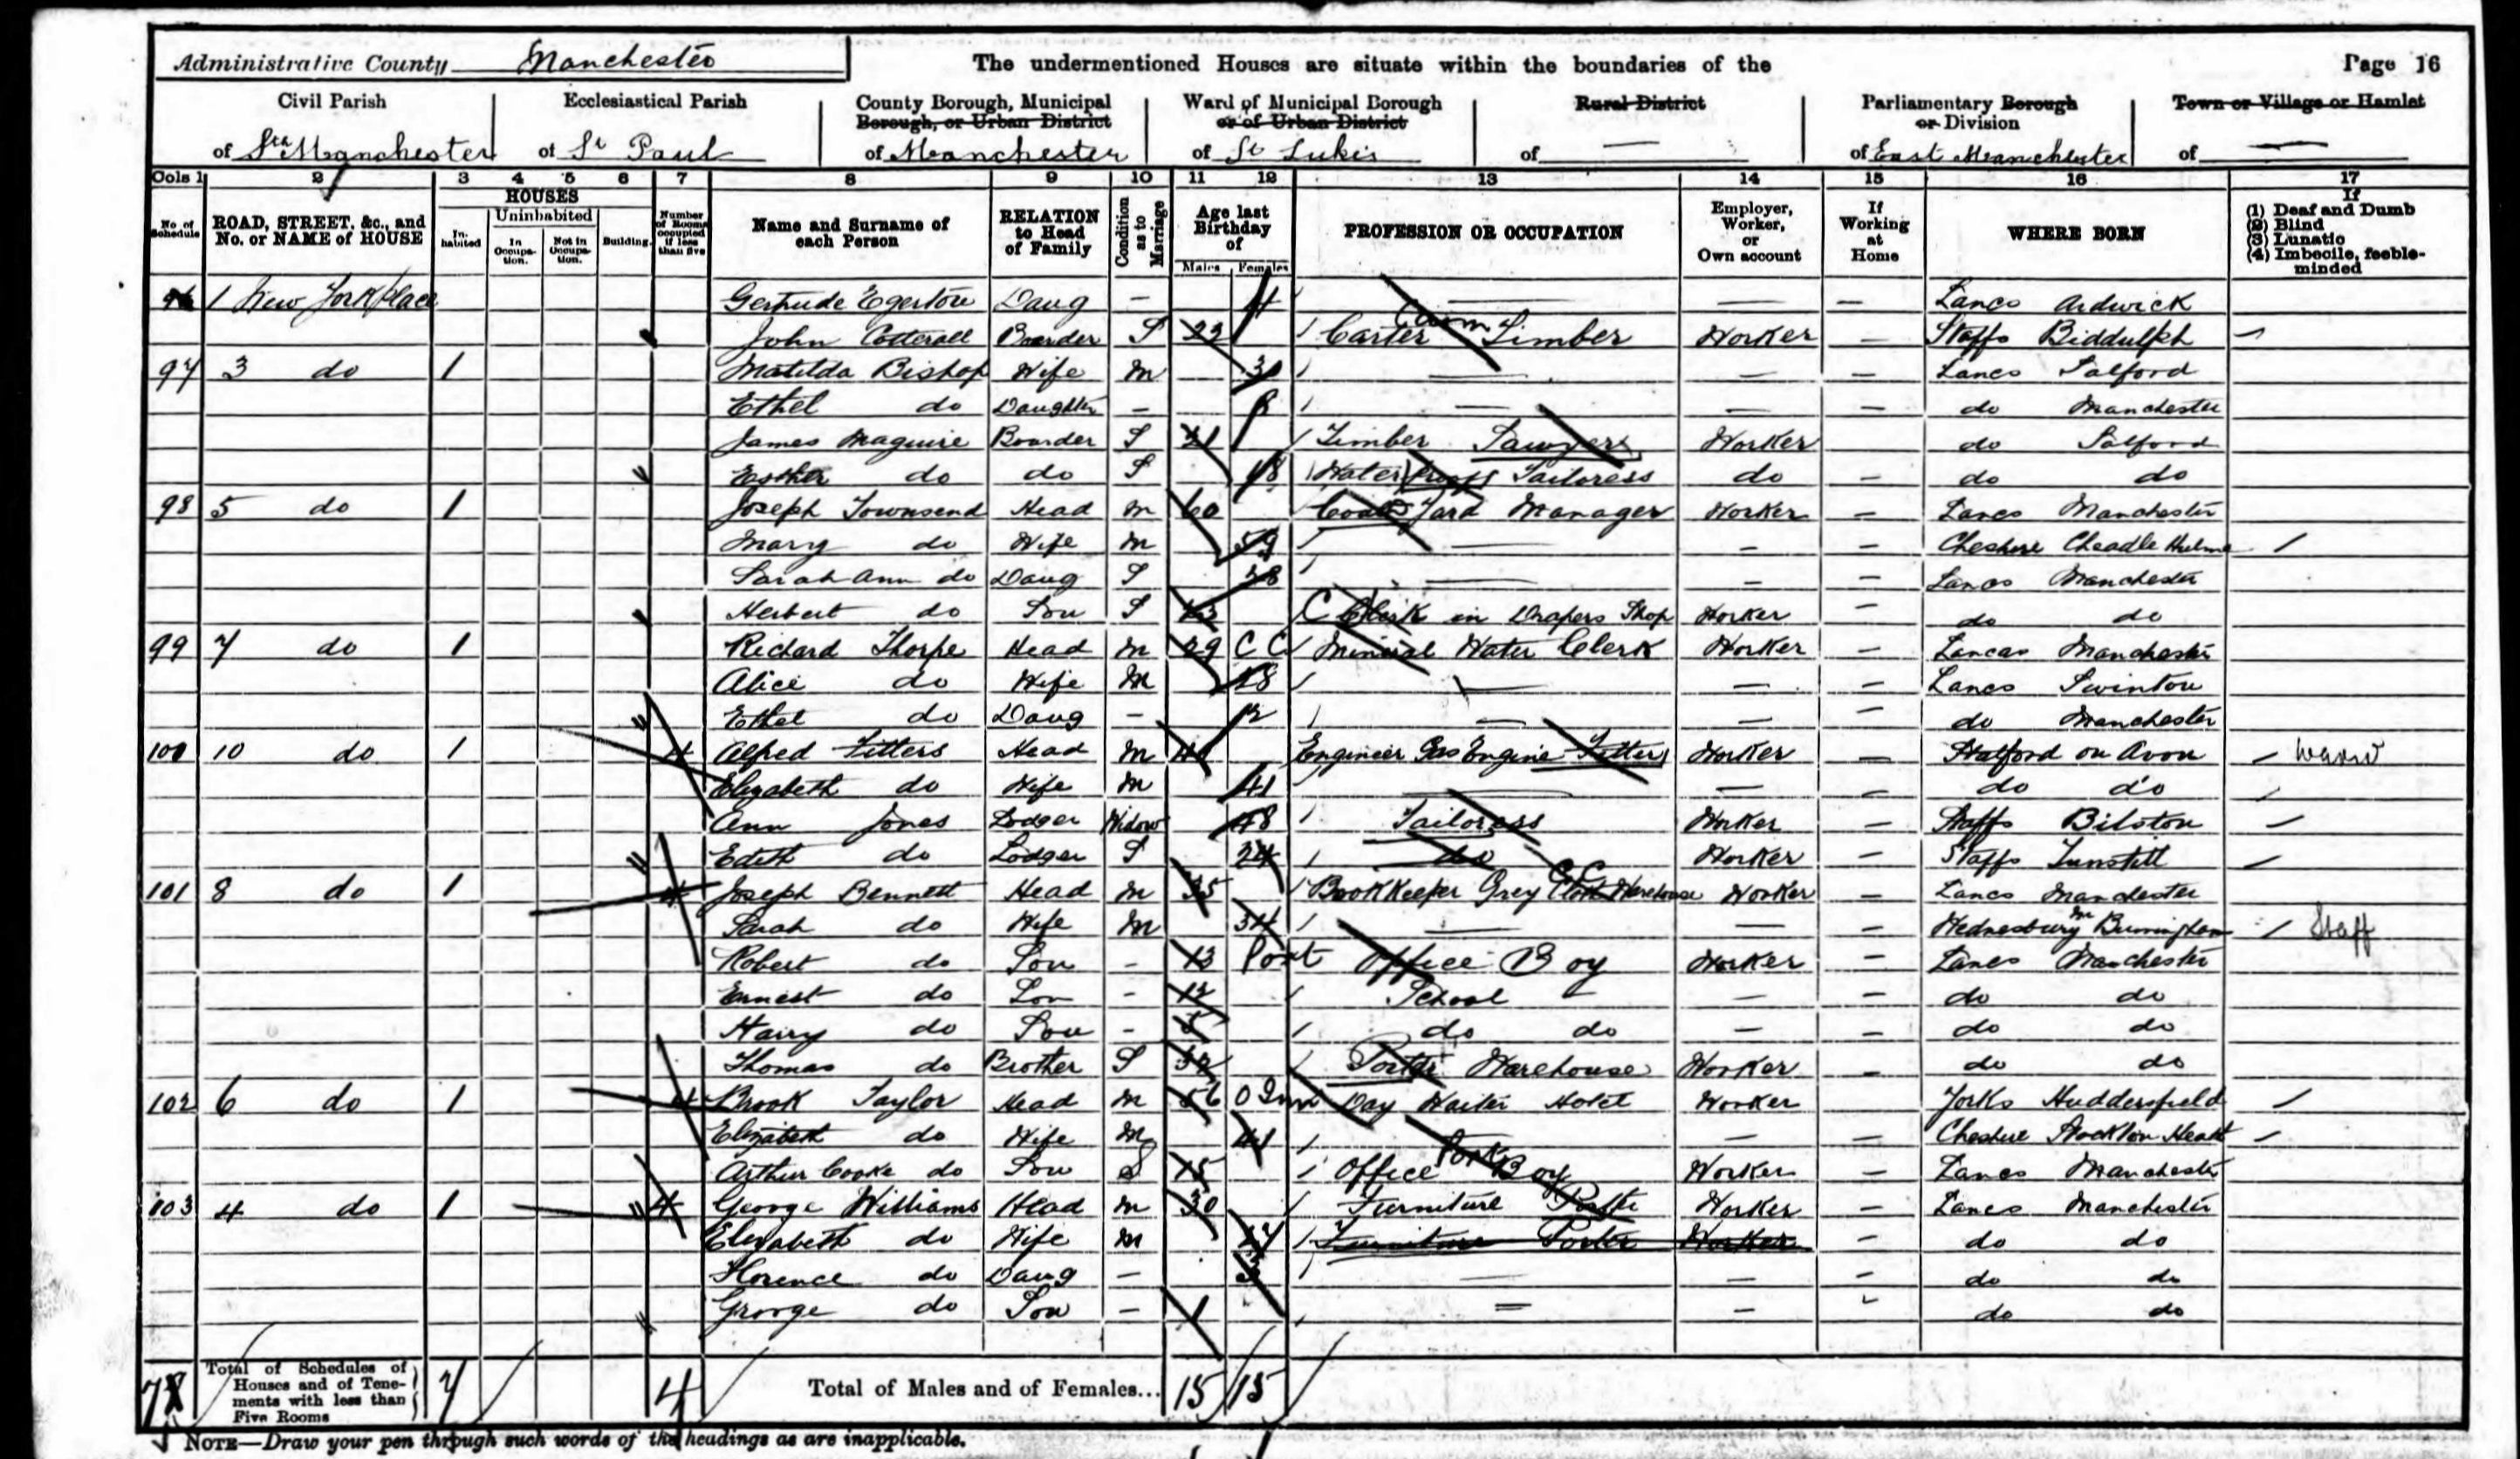 Administrative County Manchester The undermentioned Houses are situate within the boundaries of the Page 16
Civil Parish Ecclesiastical Parish County Borough, Municipal Borough, or Urban District Ward of Municipal Borough or of Urban District Rural District Parliamentary Borough or Division Town or Village or Hamlet
of Sth Manchester of St Paul of Manchester of St Lukes of — of East Manchester of —
Cols 1 2 3 4 5 6 7 8 9 10 11 12 13 14 15 16 17
No. of Schedule ROAD, STREET, &c., and No. or NAME of HOUSE HOUSES Inhabited Uninhabited In Occupation. Not in Occupation. Building. Number of Rooms occupied if less than five Name and Surname of each Person RELATION to Head of Family Condition as to Marriage Age last Birthday of Males Females PROFESSION OR OCCUPATION Employer, Worker, or Own account If Working at Home WHERE BORN If (1) Deaf and Dumb (2) Blind (3) Lunatic (4) Imbecile, feeble-minded
96 1 New York Place Gertrude Egerton Daug — — — — Lancs Ardwick
John Cotterall Boarder S 23 Carter Timber Worker — Staffs Biddulph
97 3 do 1 Matilda Bishop Wife M — — — Lancs Salford
Ethel do Daughter — 8 — — — do Manchester
James Maguire Boarder S 21 Timber Sawyers Worker — do Salford
Esther do do S 18 Water Proof Tailoress do — do do
98 5 do 1 Joseph Townsend Head M 60 Coal Yard Manager Worker — Lancs Manchester
Mary do Wife M 59 — — — Cheshire Cheadle Hulme
Sarah Ann do Daug S 28 — — — Lancs Manchester
Herbert do Son S C Clerk in Drapers Shop Worker — do do
99 7 do 1 Richard Thorpe Head M 29 CC Mineral Water Clerk Worker — Lancas Manchester
Alice do Wife M 28 — — — Lancs Swinton
Ethel do Daug — — — — do Manchester
100 10 do 1 4 Alfred Fitters Head M Engineer Gas Engine Fitter Worker — Stratford on Avon Warw
Elizabeth do Wife M 41 — — — do do
Ann Jones Lodger Widow 48 Tailoress Worker — Staffs Bilston
Edith do Lodger S 24 do Worker — Staffs Tunstill
101 8 do 1 4 Joseph Bennett Head M 35 BookKeeper Grey Cloth Warehouse CC Worker — Lancs Manchester
Sarah do Wife M 34 — — — Wednesbury Nr Birmingham Staff
Robert do Son - 13 Post Office Boy Worker — Lancs Manchester
Ernest do Son - 12 School — — do do
Harry do Son - 5 do do — — do do
Thomas do Brother S 32 Porter Warehouse Worker — do do
102 6 do 1 4 Brook Taylor Head M 56 O Inn Day Waiter Hotel Worker — Yorks Huddersfield
Elizabeth do Wife M 41 — — Cheshire Stockton Heath
Arthur Cooke do Son S 15 Office Boy Worker — Lancs Manchester
103 4 do 1 4 George Williams Head M 30 Furniture Porter Worker — Lancs Manchester
Elizabeth do Wife M 27 Furniture Porter Worker — do do
Florence do Daug — 3 — — — do do
George do Son — 1 = — — do do
7 Total of Schedules of Houses and of Tenements with less than Five Rooms 7 4 Total of Males and of Females... 15 15
NOTE—Draw your pen through such words of the headings as are inapplicable.